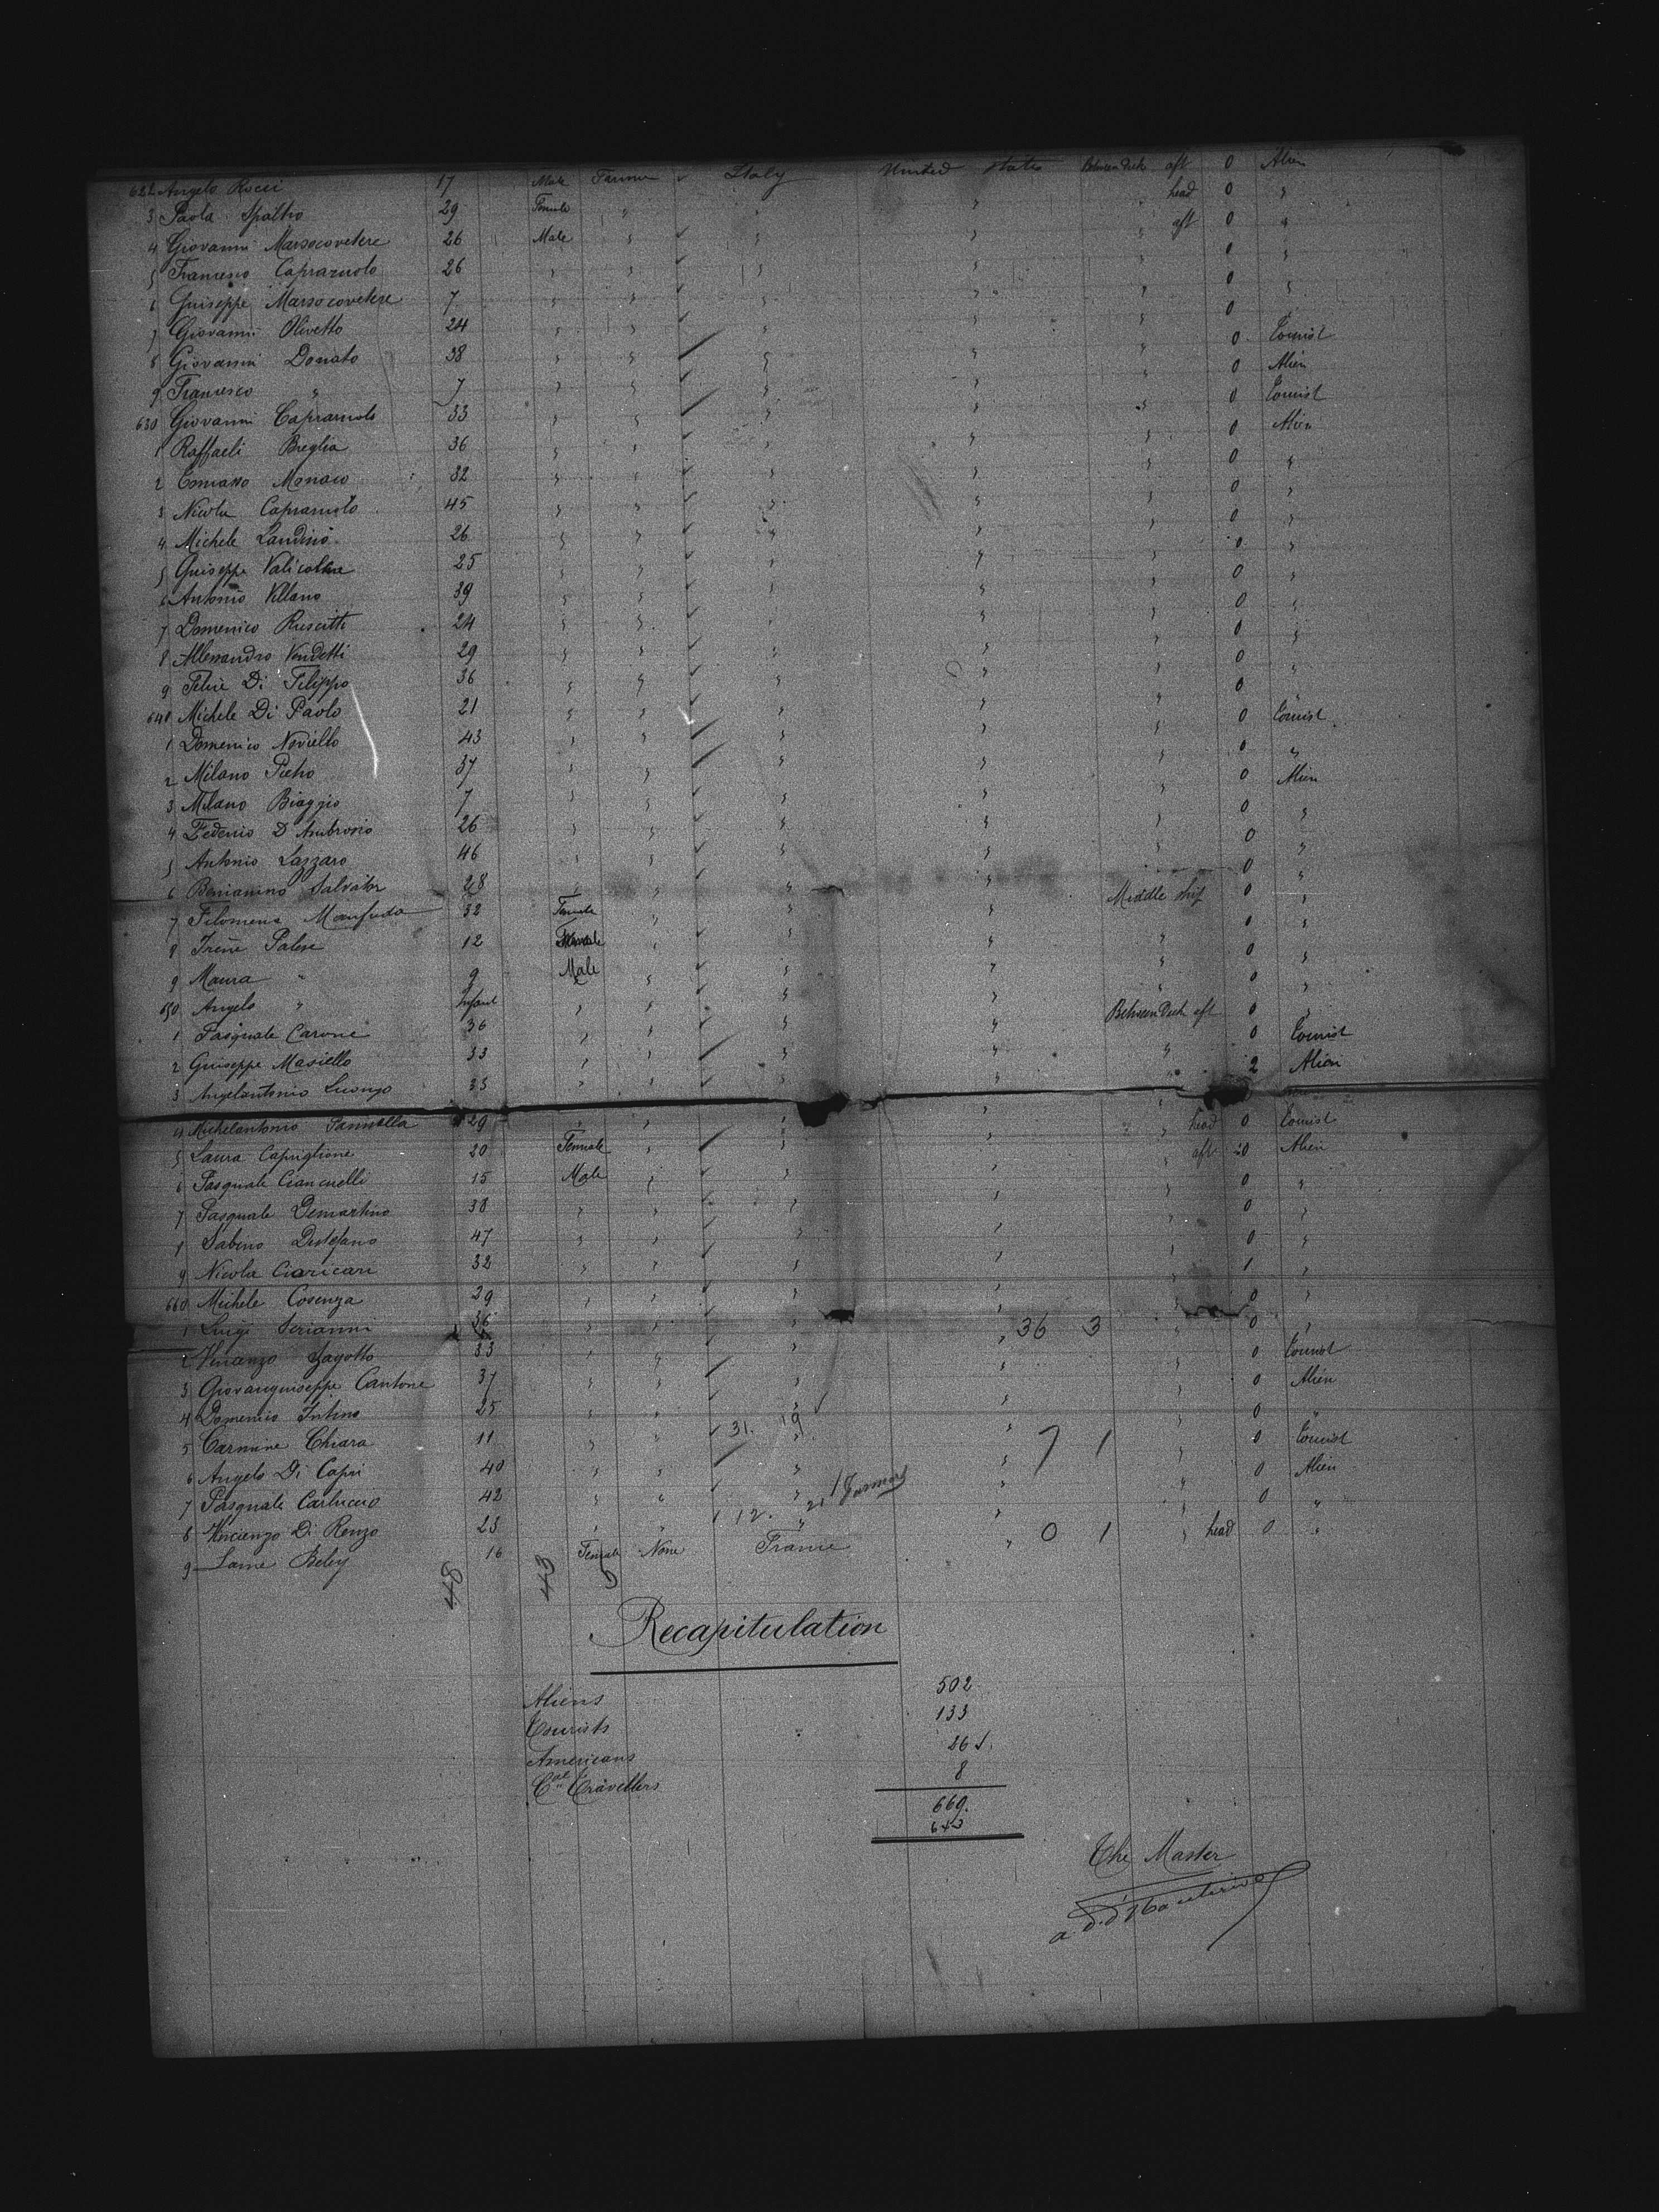 622 Angelo Rocci 17 Male Farmer Italy United States Between Deck aft 0 Alien
3 Paola Spaltro 29 Female " " " " head 0 "
4 Giovanni Marsocovetere 26 Male " " " " aft 0 "
5 Francesco Capraruolo 26 " " " " " 0 "
6 Guiseppe Marsocovetere 7 " " " " " 0 "
7 Giovanni Olivetto 24 " " " " " 0
8 Giovanni Donato 38 " " " " " 0 Tourist
9 Francesco " 7 " " " " " 0 Alien
630 Giovanni Capraruolo 33 " " " " " 0 Tourist
1 Raffaeli Breglia 36 " " " " " 0 Alien
2 Monaco 32 " " " " " 0 "
3 Nicola Capraruolo 45 " " " " " 0 "
4 Michele Landino 26 " " " " " 0 "
5 Guiseppe 25 " " " " " 0 "
6 Antonio Villano 39 " " " " " 0 "
7 Domenico Ruscitti 24 " " " " " 0 "
8 Allessandro Vendetti 29 " " " " " 0 "
9 Felice Di Filippo 36 " " " " " 0 "
640 Michele Di Paolo 21 " " " " " 0 "
1 Domenico Noviello 43 " " " " " 0 Tourist
2 Milano Pietro 37 " " " " " 0 "
3 Milano Biaggio 7 " " " " " 0 Alien
4 Federico D'Ambrosio 26 " " " " " 0 "
5 Antonio Lazzaro 46 " " " " " 0 "
6 Beniamino Salvator 28 " " " " " 0 "
7 Filomena Manfreda 32 Female " " " Middle ship 0 "
8 Irene Palese 12 Female " " " " 0 "
9 Maura " 9 " " " " 0 "
650 Angelo " Infant Male " " " " 0 "
1 Pasquale Carone 36 " " " " Between Deck aft 0 "
2 Guiseppe Masiello 33 " " " " " 0 Tourist
3 Angelantonio Luongo 35 " " " " " 2 Alien
4 Michelantonio 29 " " " " head 0 Tourist
5 Laura Capuglione 20 Female " " " aft 0 Alien
6 Pasquale Ciancuelli 15 Male " " " " 0 "
7 Pasquale Demartino 38 " " " " " 0 "
8 Sabino Destefano 47 " " " " " 0 "
9 Nicola Ciaricari 32 " " " " " 1 "
660 Michele Cosenza 29 " " " " " 0 "
1 Luigi Serianni 36 " " " " 36 3 0 "
2 Vincenzo Zagotto 33 " " " " " 0 Tourist
3 Giovanguiseppe Cantone 37 " " " " " 0 Alien
4 Domenico Intino 25 " " " " " 0 "
5 Carmine Chiara 11 " " 31. 19 " 7 1 " 0 Tourist
6 Angelo Di Capri 40 " " " " " 0 Alien
7 Pasquale Carlucci 42 " " " " " 0 "
8 Vincenzo Di Renzo 23 " " 12. 21 " 0 1 " head 0 "
9 Beley 16 Female None France "
48 43 5
Recapitulation
Aliens 502
Tourists 133
Americans 26
Cal Travellers 8
669.
643
The Master